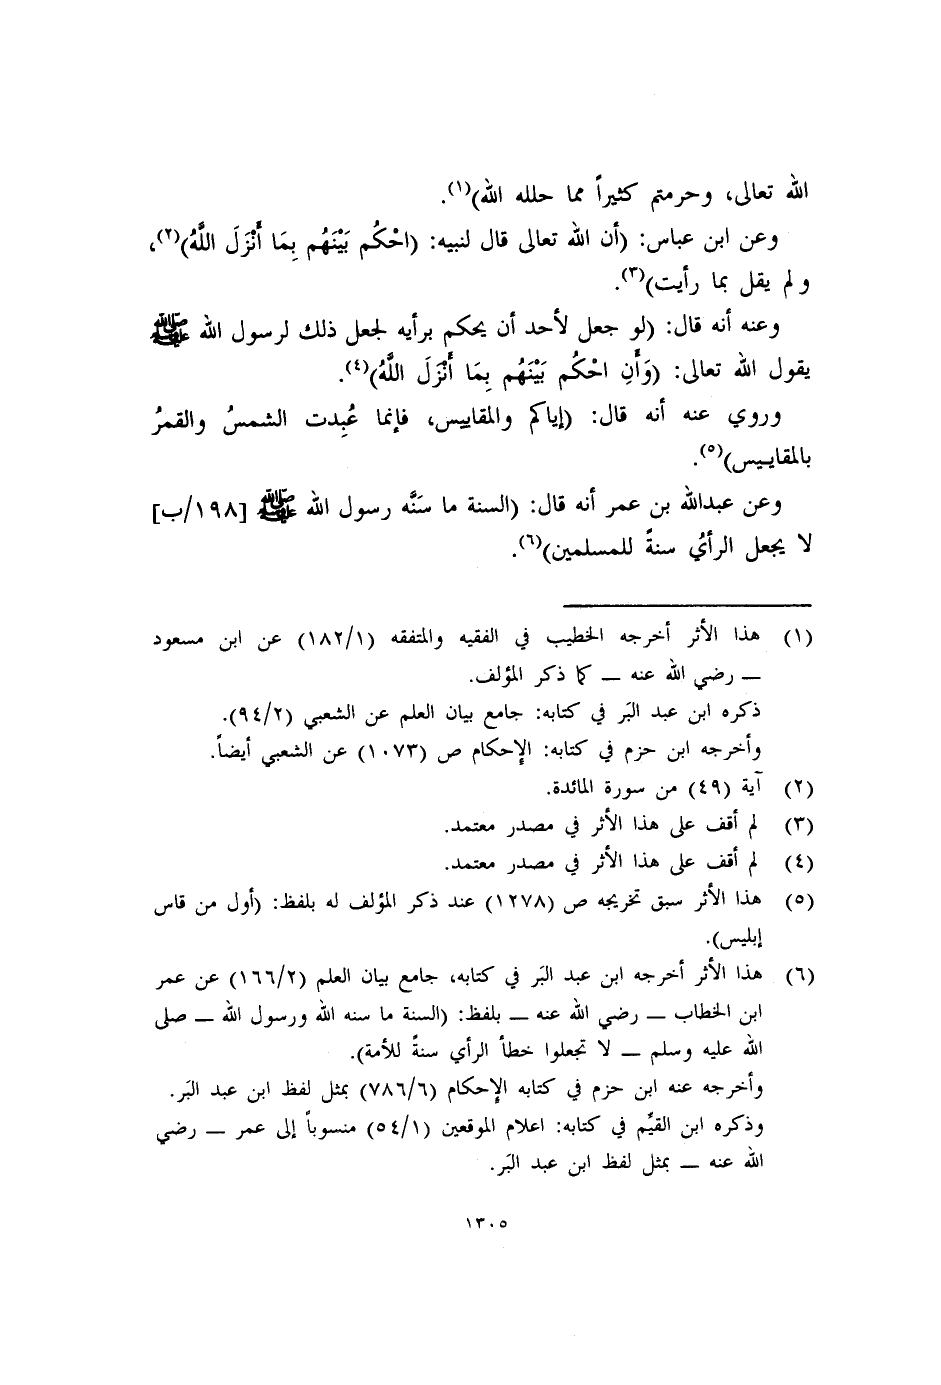 الله تعالى، وحرمتم كثيراً مما حلله الله)(١).
وعن ابن عباس: (أن الله تعالى قال لنبيه: (احْكُم بَيْنَهُم بِمَا أَنْزَلَ اللَّهُ)(٢)،
ولم يقل بما رأيت)(٣).
وعنه أنه قال: (لو جعل لأحد أن يحكم برأيه لجعل ذلك لرسول الله ﷺ
يقول الله تعالى: (وَأَنِ احْكُم بَيْنَهُم بِمَا أَنْزَلَ اللَّهُ)(٤).
وروي عنه أنه قال: (إياكم والمقاييس، فإنما عُبِدت الشمسُ والقمرُ
بالمقاييس)(٥).
وعن عبدالله بن عمر أنه قال: (السنة ما سَنَّه رسول الله ﷺ [١٩٨/ب]
لا يجعل الرأيُ سنةً للمسلمين)(٦).
(١) هذا الأثر أخرجه الخطيب في الفقيه والمتفقه (١٨٢/١) عن ابن مسعود
ــ رضي الله عنه ــ كما ذكر المؤلف.
ذكره ابن عبد البَر في كتابه: جامع بيان العلم عن الشعبي (٩٤/٢).
وأخرجه ابن حزم في كتابه: الإحكام ص (١٠٧٣) عن الشعبي أيضاً.
(٢) آية (٤٩) من سورة المائدة.
(٣) لم أقف على هذا الأثر في مصدر معتمد.
(٤) لم أقف على هذا الأثر في مصدر معتمد.
(٥) هذا الأثر سبق تخريجه ص (١٢٧٨) عند ذكر المؤلف له بلفظ: (أول من قاس
إبليس).
(٦) هذا الأثر أخرجه ابن عبد البَر في كتابه، جامع بيان العلم (١٦٦/٢) عن عمر
ابن الخطاب ــ رضي الله عنه ــ بلفظ: (السنة ما سنه الله ورسول الله ــ صلى
الله عليه وسلم ــ لا تجعلوا خطأ الرأي سنةً للأمة).
وأخرجه عنه ابن حزم في كتابه الإحكام (٧٨٦/٦) بمثل لفظ ابن عبد البَر.
وذكره ابن القيِّم في كتابه: اعلام الموقعين (٥٤/١) منسوباً إلى عمر ــ رضي
الله عنه ــ بمثل لفظ ابن عبد البَر.
١٣٠٥